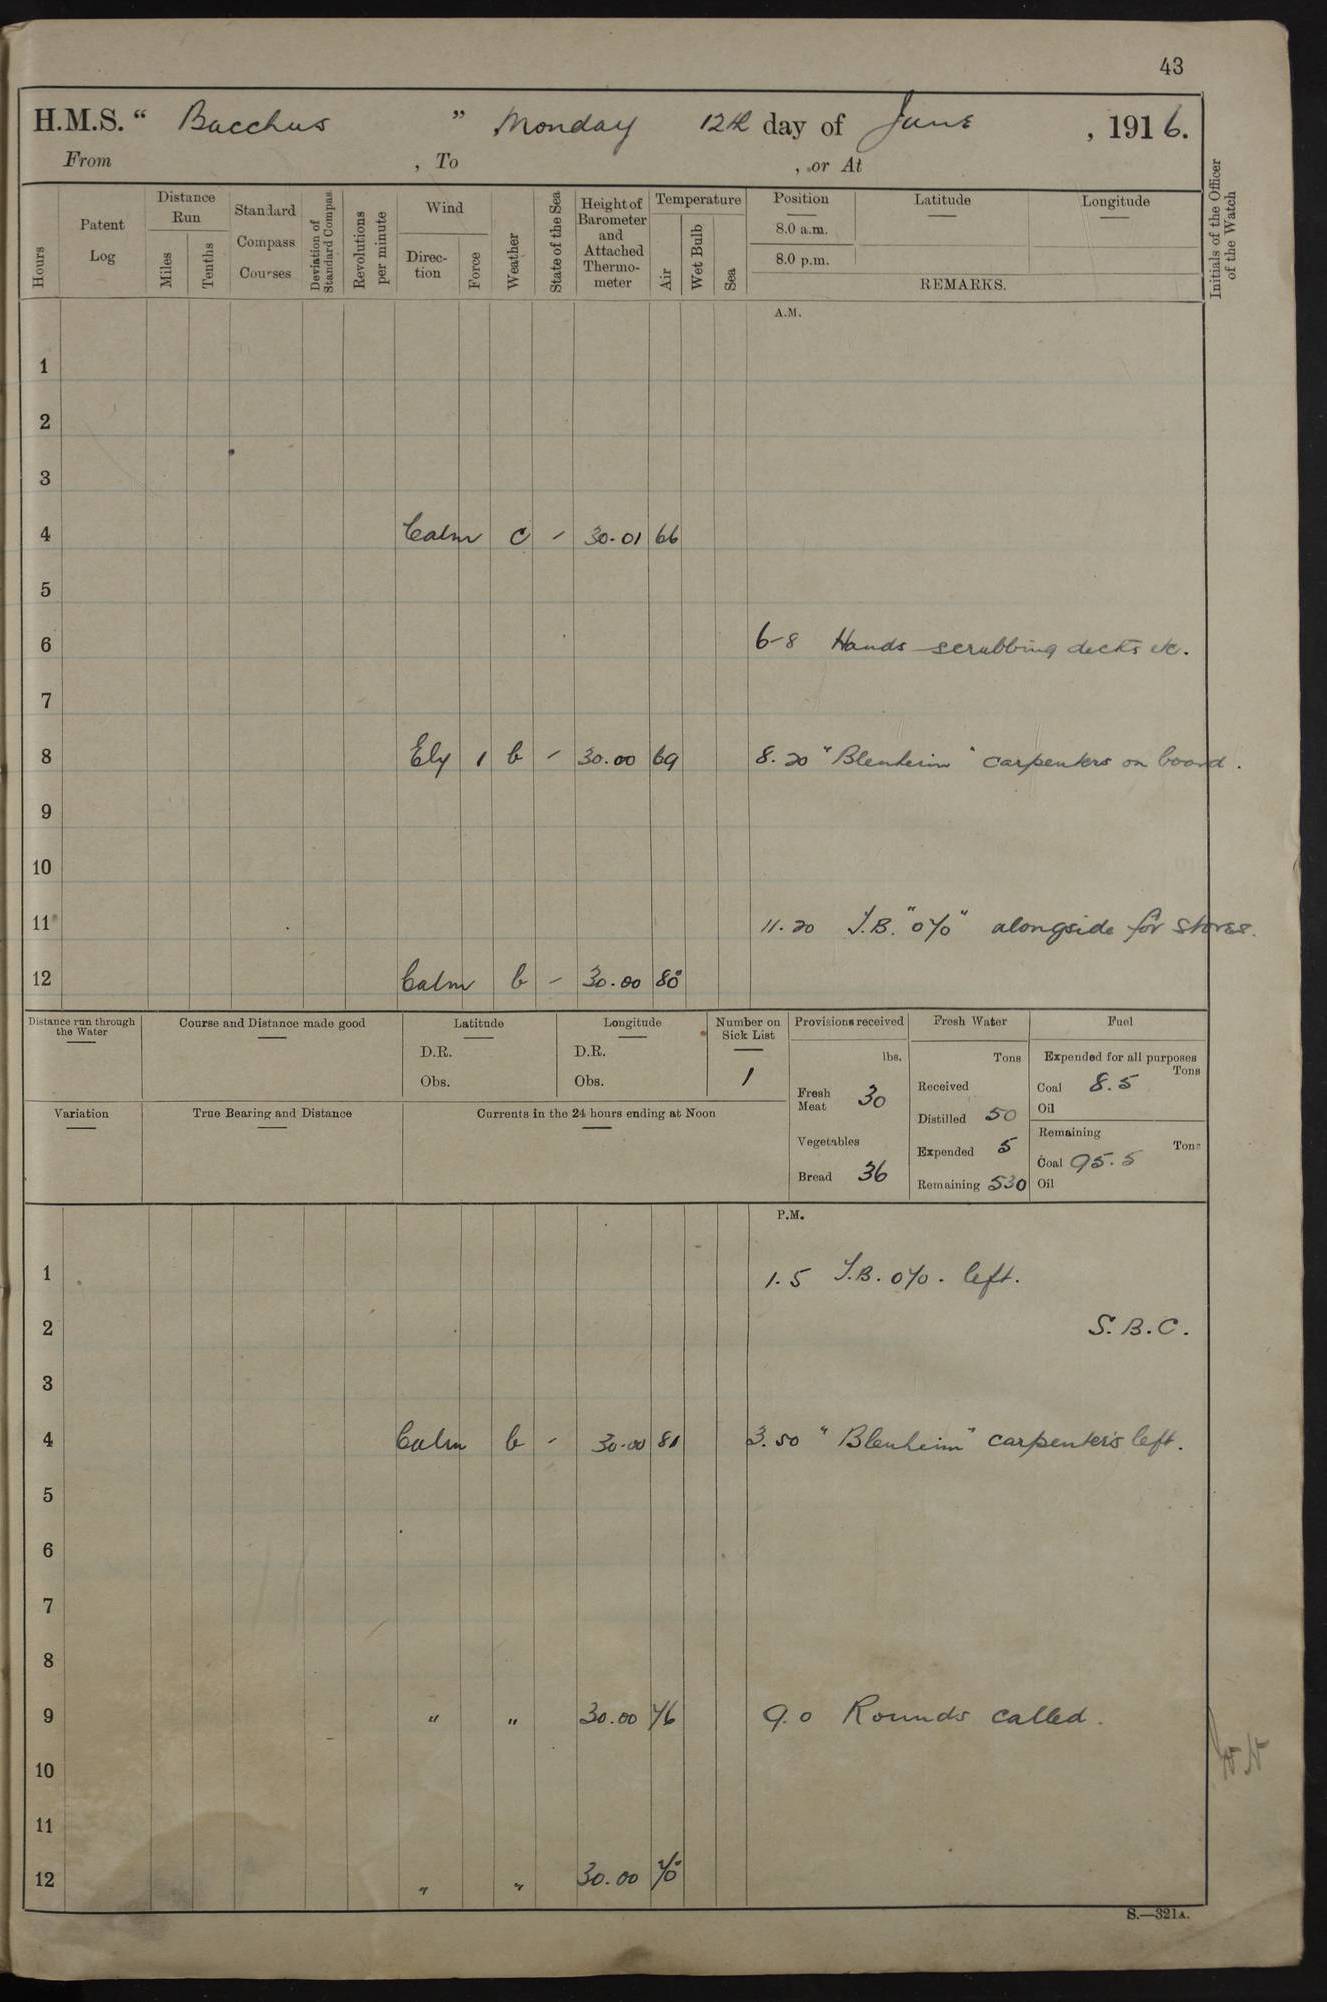 43
H.M.S. “ Bacchus ” Monday 12th day of June , 1916.
From , To , or At
Hours
Patent Log
Distance Run
Miles
Tenths
Standard Compass Courses
Deviation of Standard Compass
Revolutions per minute
Wind
Direc- tion
Force
Weather
State of the Sea
Height of Barometer and Attached Thermo- meter
Temperature
Air
Wet Bulb
Sea
Position Latitude Longitude
8.0 a.m.
8.0 p.m.
REMARKS.
Initials of the Officer of the Watch
A.M.
1
2
3
4 Calm c - 30.01 66
5
6 6-8 Hands scrubbing decks etc.
7
8 Ely 1 b - 30.00 69 8.20 "Blenheim" carpenters on board.
9
10
11 11.20 T.B. "070" alongside for stores.
12 Calm b - 30.00 80
Distance run through the Water
Course and Distance made good
Latitude
D.R.
Obs.
Longitude
D.R.
Obs.
Number on Sick List
1
Provisions received
lbs.
Fresh Meat 30
Vegetables
Bread 36
Fresh Water
Tons
Received
Distilled 50
Expended 5
Remaining 530
Fuel
Expended for all purposes
Tons
Coal 8.5
Oil
Remaining
Tons
Coal 95.5
Oil
Variation
True Bearing and Distance
Currents in the 24 hours ending at Noon
P.M.
1 1.5 T.B. 070. left.
2 S.B.C.
3
4 Calm b - 30.00 81 3.50 "Blenheim" carpenters left.
5
6
7
8
9 " " 30.00 76 9.0 Rounds called.
10
11
12 " " 30.00 70
S.—321A.